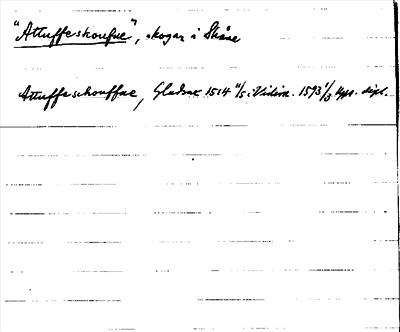 "Attuffeskoufue", skogar i Skåne
Attuffeschouffue, Gladsax 1514 11/5 i Vidim. 1593 1/3 Upps. dipl.